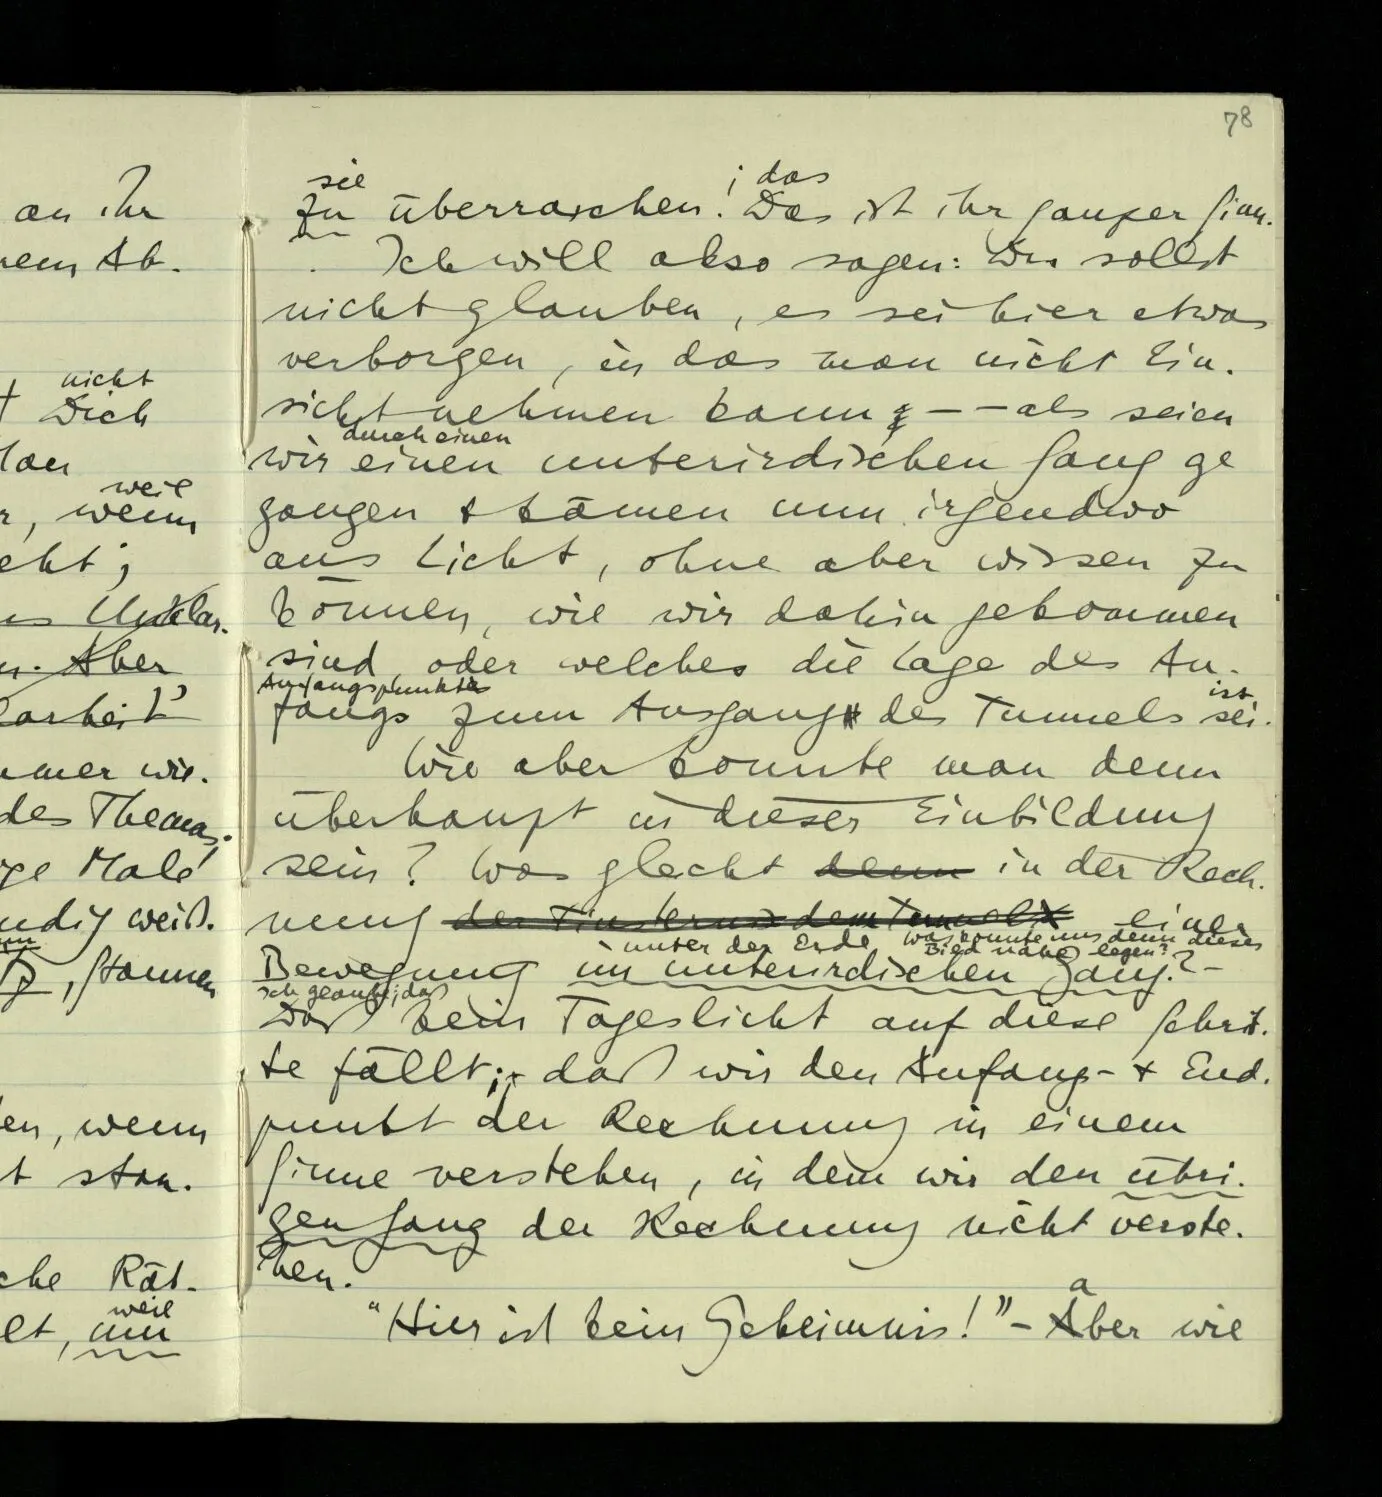 an ihr
nem Ab-
nicht
Dich
weil
wenn
eht;
Unklar-
Aber
arbeit"
mmer wie-
des Themas.
ige Male
ndig weiß.
, Staunen
en, wenn
t stau-
che Rät-
weil
lt, um
78
sie ; das
zu überraschen. Das ist ihr ganzer Sinn.
Ich will also sagen: Du sollst
nicht glauben, es sei hier etwas
verborgen, in das man nicht Ein-
sicht nehmen kann – – als seien
durch einen
wir einen unterirdischen Gang ge
gangen & kämen nun irgendwo
ans Licht, ohne aber wissen zu
können, wie wir dahin gekommen
sind oder welches die Lage des An-
Anfangspunktes ist
fangs zum Ausgang des Tunnels sei.
Wie aber konnte man denn
überhaupt in dieser Einbildung
sein? Was gleicht denn in der Rech-
nung der Finsternis dem Tunnel einer
unter der Erde was konnte uns denn dieses
Bild nahe legen?
Bewegung im unterirdischen Gang? –
Ich glaube; daß
Daß kein Tageslicht auf diese Schrit-
te fällt; daß wir den Anfang- & End-
punkt der Rechnung in einem
Sinne verstehen, in dem wir den übri-
gen Gang der Rechnung nicht verste-
hen.
a
"Hier ist kein Geheimnis!" – Aber wie